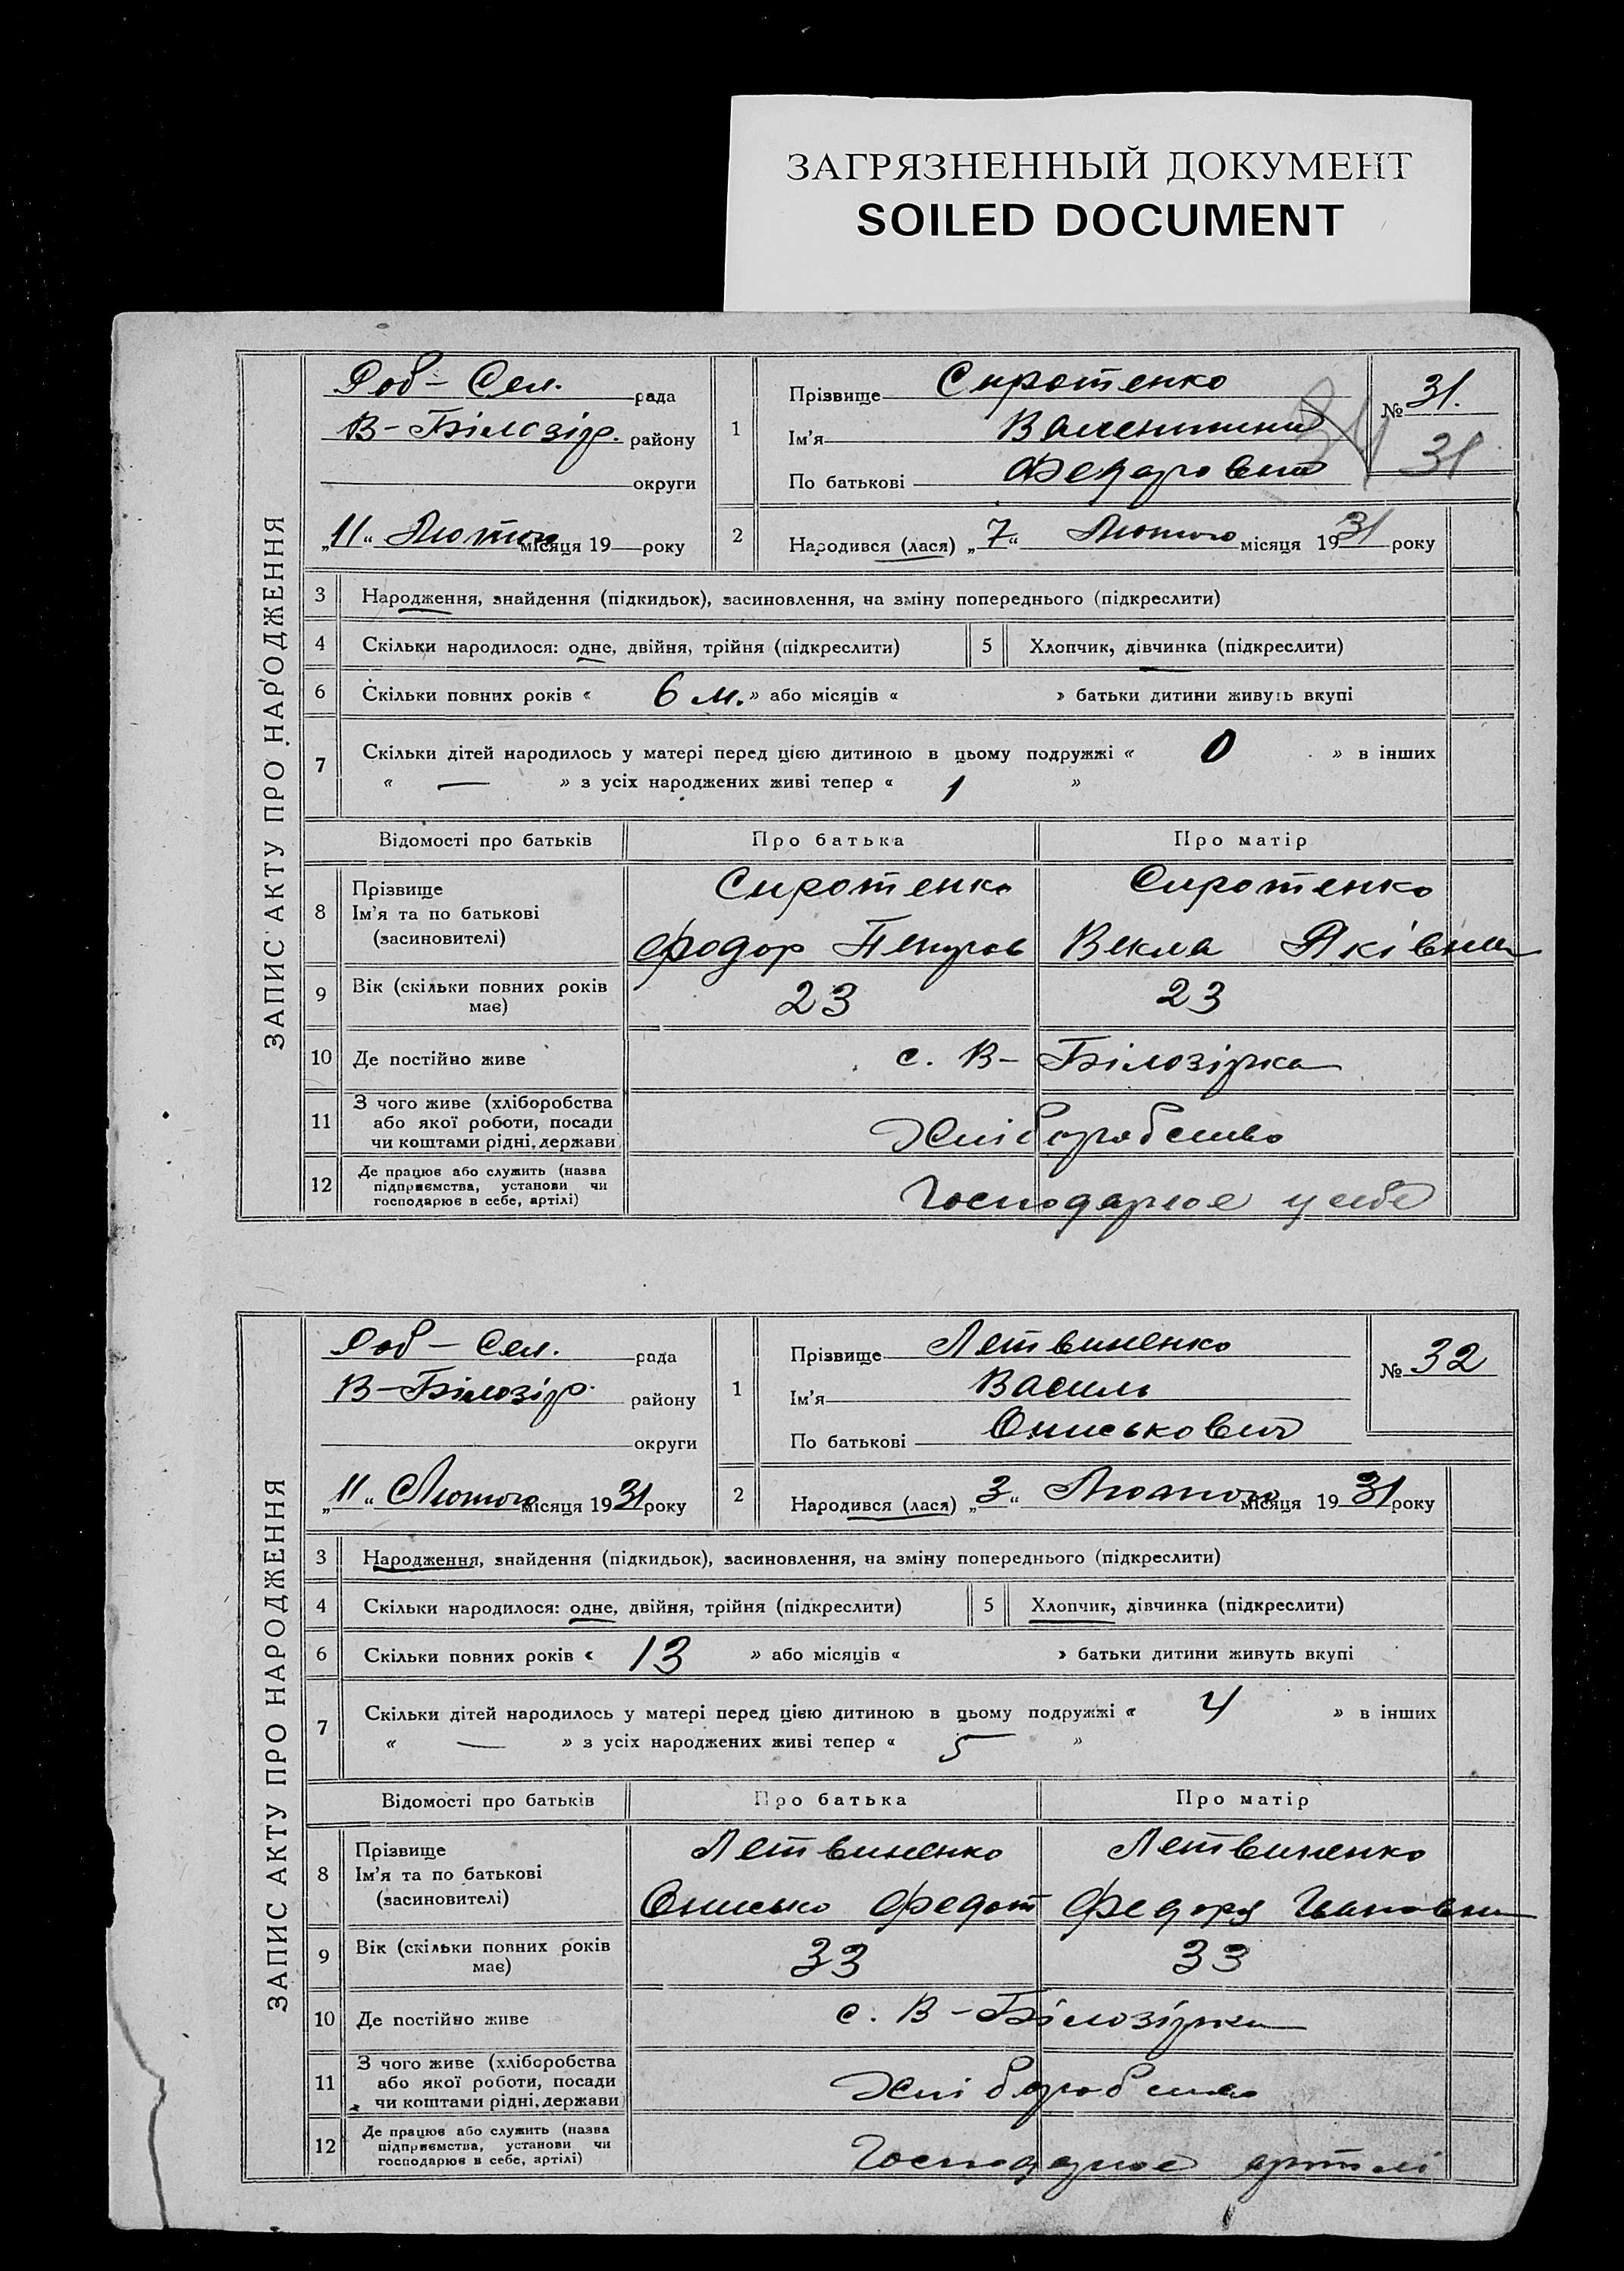 ЗАГРЯЗНЕННЫЙ ДОКУМЕНТ
SOILED DOCUMENT
ЗАПИС АКТУ ПРО НАРОДЖЕННЯ
Роб – Сел. рада
В – Білозір. району
округи
„11“ Лютого місяця 19 року
1
Прізвище Сиротенко
Ім'я
По батькові
№ 31.
31
31
2
Народився (лася) „7“ Лютого місяця 1931 року
3 Народження, знайдення (підкидьок), засиновлення, на зміну попереднього (підкреслити)
4 Скільки народилося: одне, двійня, трійня (підкреслити) 5 Хлопчик, дівчинка (підкреслити)
6 Скільки повних років « 6 м. » або місяців « » батьки дитини живуть вкупі
7 Скільки дітей народилось у матері перед цією дитиною в цьому подружжі « 0 » в інших
« — » з усіх народжених живі тепер « 1 »
Відомості про батьків Про батька Про матір
8 Прізвище Сиротенко Сиротенко
Ім'я та по батькові
(засиновителі) Федор Петров Векла Яківна
9 Вік (скільки повних років має) 23 23
10 Де постійно живе с. В – Білозірка
11 З чого живе (хліборобства
або якої роботи, посади
чи коштами рідні, держави Хліборобство
12 Де працює або служить (назва
підприємства, установи чи
господарює в себе, артілі) Господарює у себе
ЗАПИС АКТУ ПРО НАРОДЖЕННЯ
Роб – Сел. рада
В – Білозір. району
округи
„11“ Лютого місяця 1931 року
1
Прізвище Летвиненко
Ім'я Василь
По батькові Ониськович
№ 32
2
Народився (лася) „3“ Лютого місяця 1931 року
3 Народження, знайдення (підкидьок), засиновлення, на зміну попереднього (підкреслити)
4 Скільки народилося: одне, двійня, трійня (підкреслити) 5 Хлопчик, дівчинка (підкреслити)
6 Скільки повних років « 13 » або місяців « » батьки дитини живуть вкупі
7 Скільки дітей народилось у матері перед цією дитиною в цьому подружжі « 4 » в інших
« — » з усіх народжених живі тепер « 5 »
Відомості про батьків Про батька Про матір
8 Прізвище Летвиненко Летвиненко
Ім'я та по батькові
(засиновителі) Онисько Федот Федора Івановна
9 Вік (скільки повних років має) 33 33
10 Де постійно живе с. В – Білозірка
11 З чого живе (хліборобства
або якої роботи, посади
чи коштами рідні, держави Хліборобство
12 Де працює або служить (назва
підприємства, установи чи
господарює в себе, артілі) Господарює артілі